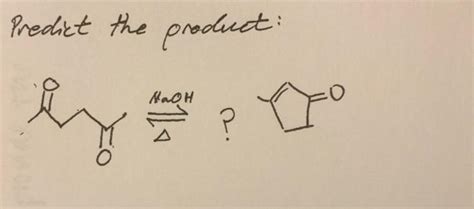 Predict the product:
O NaOH O
Δ ?
O